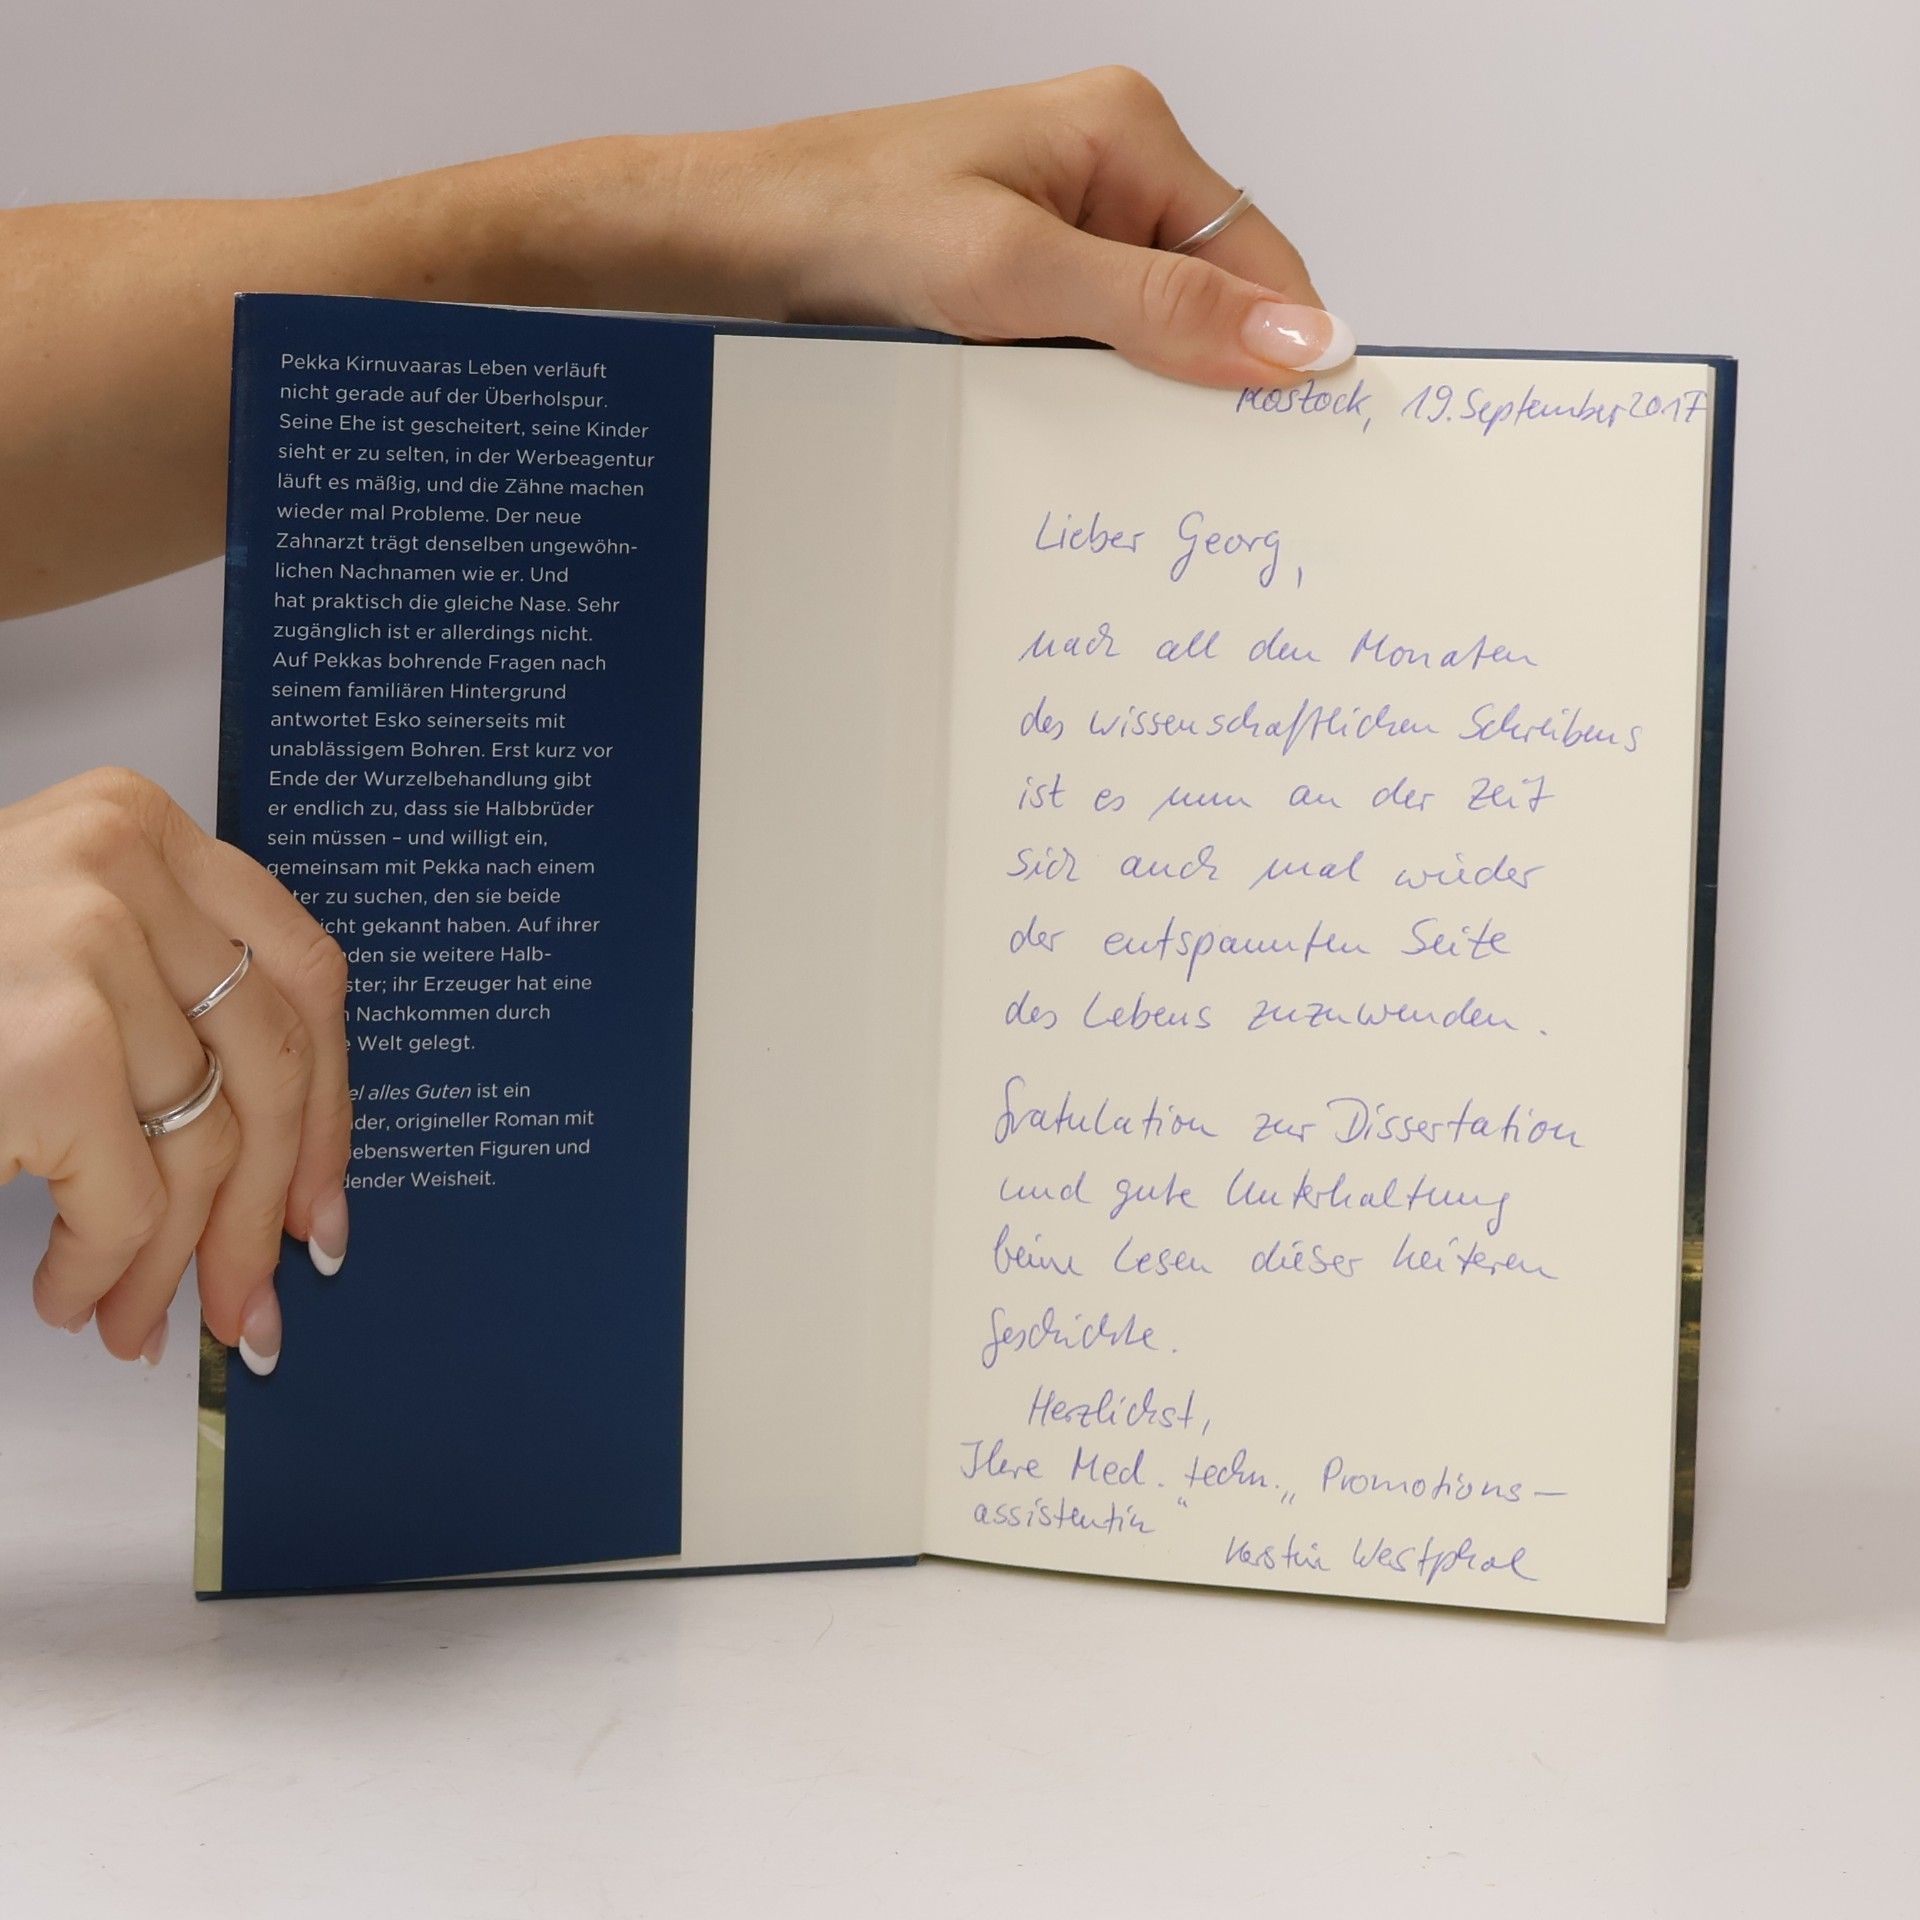 Pekka Kirnuvaaras Leben verläuft
nicht gerade auf der Überholspur.
Seine Ehe ist gescheitert, seine Kinder
sieht er zu selten, in der Werbeagentur
läuft es mäßig, und die Zähne machen
wieder mal Probleme. Der neue
Zahnarzt trägt denselben ungewöhn-
lichen Nachnamen wie er. Und
hat praktisch die gleiche Nase. Sehr
zugänglich ist er allerdings nicht.
Auf Pekkas bohrende Fragen nach
seinem familiären Hintergrund
antwortet Esko seinerseits mit
unablässigem Bohren. Erst kurz vor
Ende der Wurzelbehandlung gibt
er endlich zu, dass sie Halbbrüder
sein müssen – und willigt ein,
gemeinsam mit Pekka nach einem
ter zu suchen, den sie beide
icht gekannt haben. Auf ihrer
den sie weitere Halb-
ster; ihr Erzeuger hat eine
n Nachkommen durch
e Welt gelegt.
el alles Guten ist ein
der, origineller Roman mit
iebenswerten Figuren und
dender Weisheit.
Rostock, 19. September 2017
Lieber Georg,
nach all den Monaten
des wissenschaftlichen Schreibens
ist es nun an der Zeit
sich auch mal wieder
der entspannten Seite
des Lebens zuzuwenden.
Gratulation zur Dissertation
und gute Unterhaltung
beim Lesen dieser heiteren
Geschichte.
Herzlichst,
Ihre Med. techn. „Promotions-
assistentin“
Kerstin Westphal